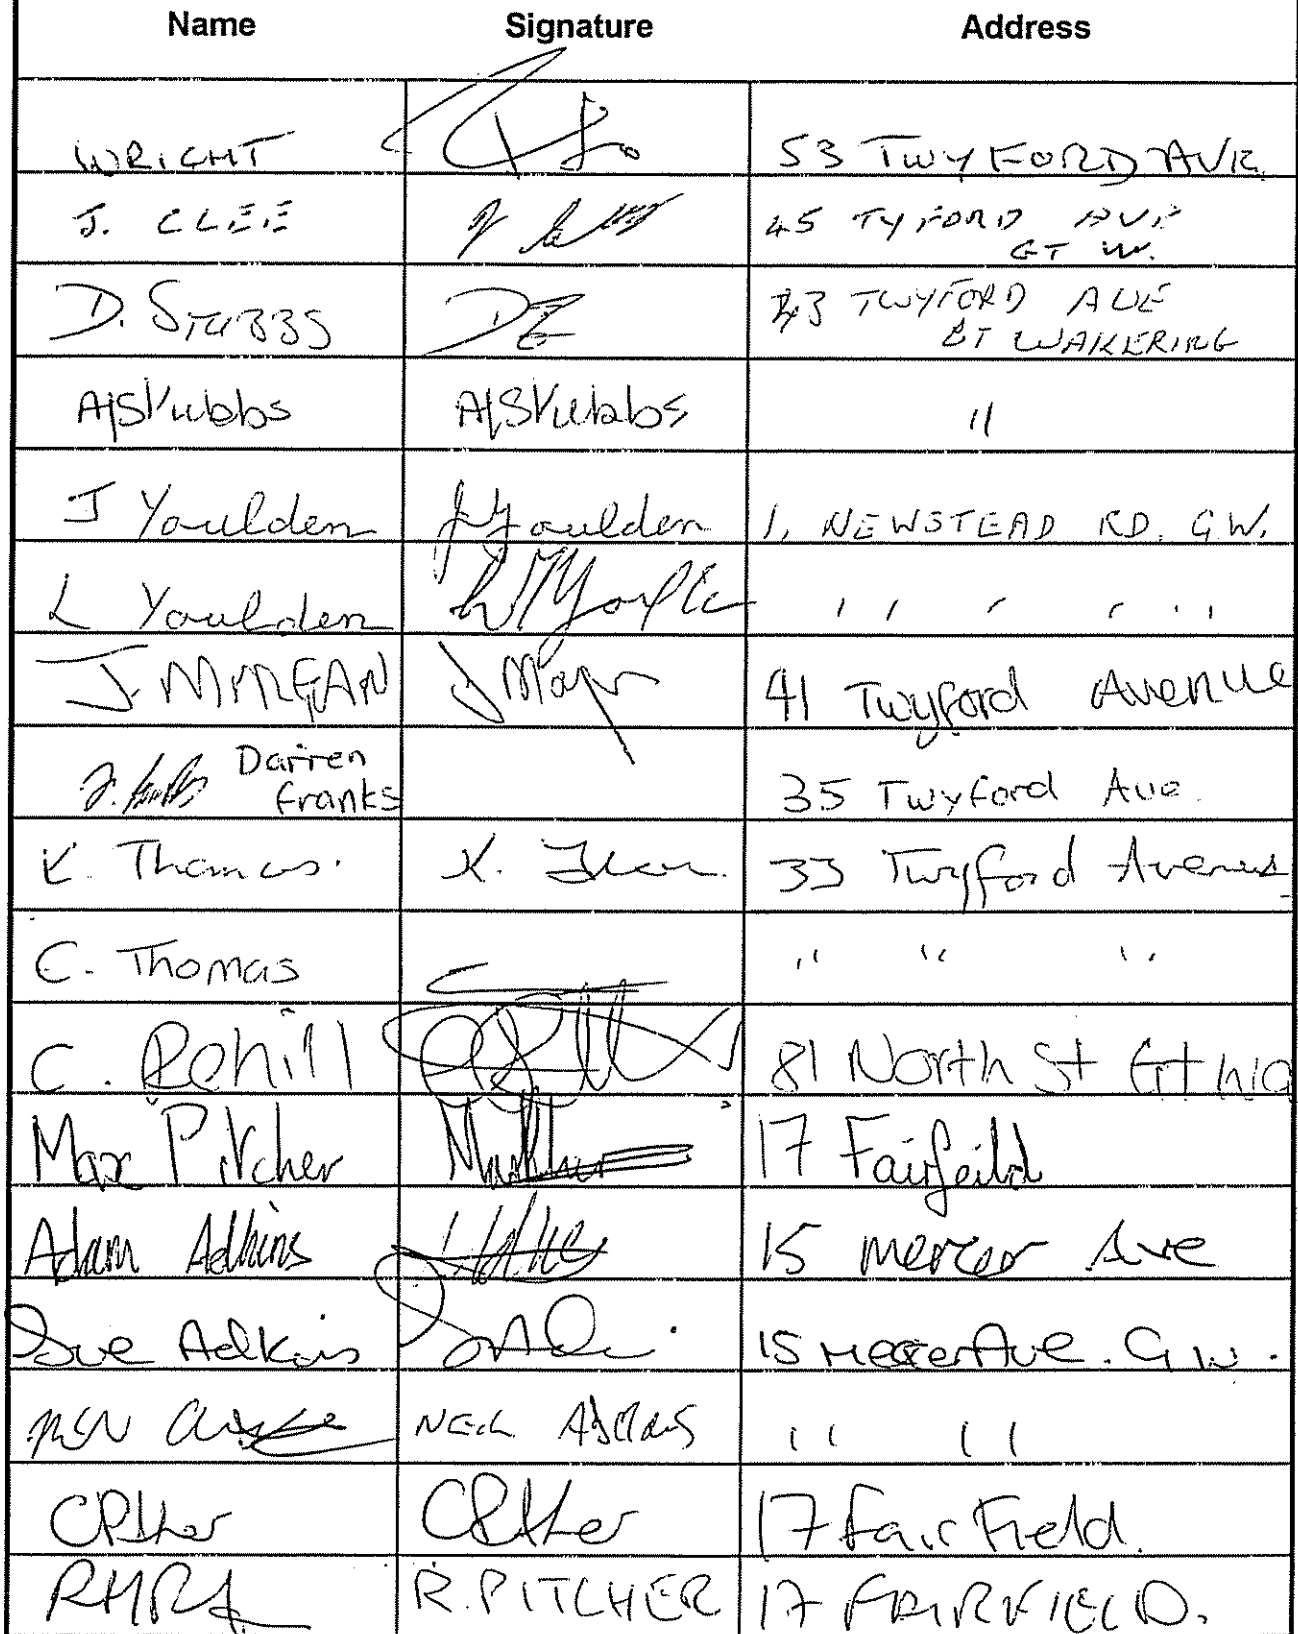 Name Signature Address
WRIGHT 53 TWYFORD AVE
J. CLEE 45 TYFORD AVE
GT W.
D. STUBBS 43 TWYFORD AVE
GT WAKERING
AJStubbs AJStubbs "
J Youlden JYoulden 1, NEWSTEAD RD. G.W.
L Youlden " " " "
J. MORGAN J Morgan 41 Twyford Avenue
Darren
franks 35 Twyford Ave.
K. Thomas. K. 33 Twyford Avenue
C. Thomas " " "
C. Rehill 81 North St Gt Wa
Max Pitcher 17 Fairfeild
Adam Adkins 15 mercer Ave
Sue Adkins 15 Mercer Ave. G W.
NEIL ADKINS " "
CPitcher CPitcher 17 Fairfield.
R.PITCHER 17 FAIRFIELD.